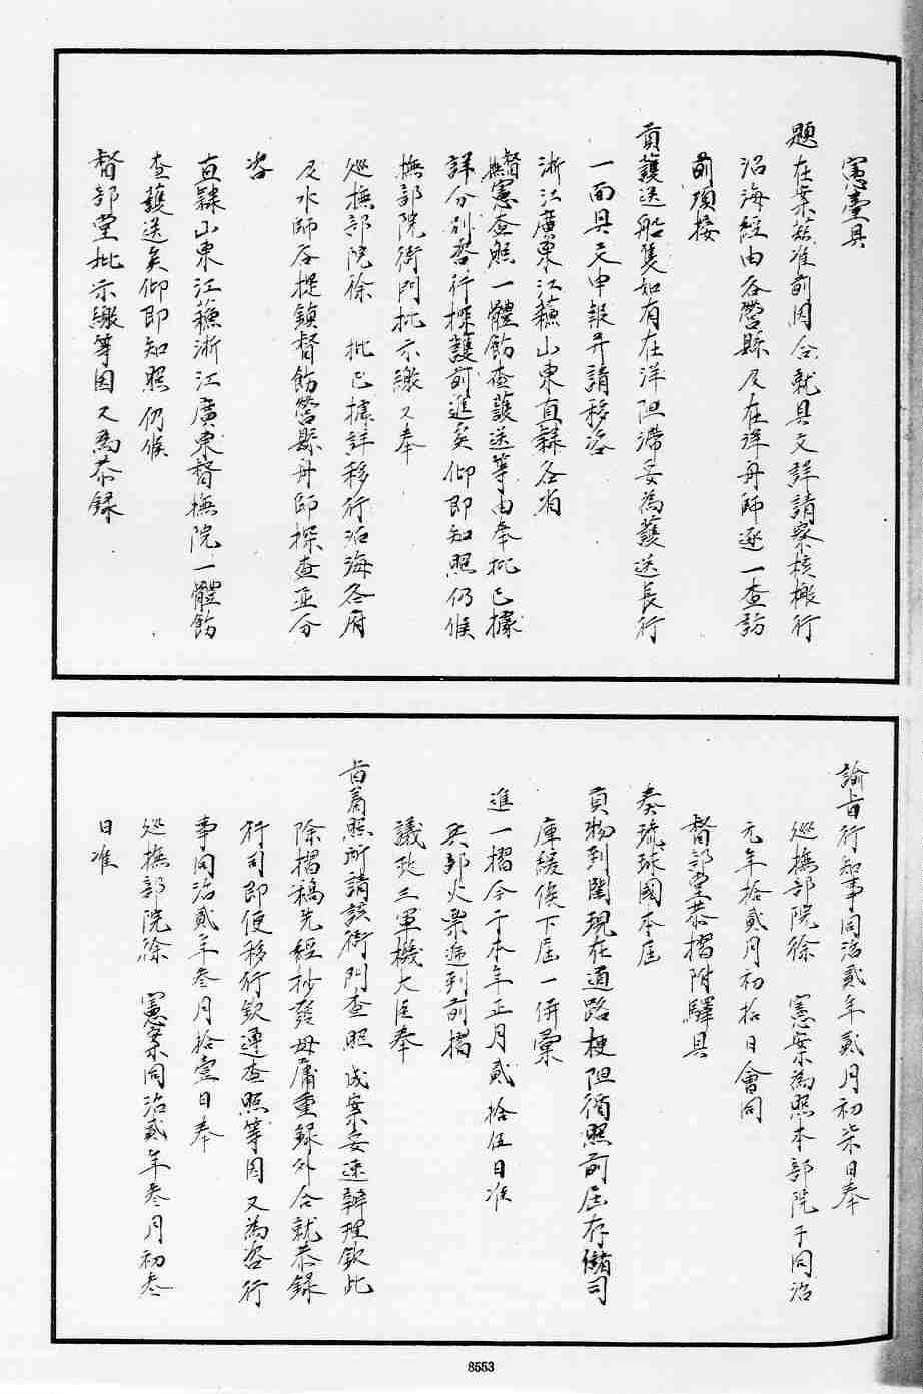 憲臺具
題在案茲准前因合就具文詳請察核檄行
沿海經由各營縣及在洋舟師逐一查訪
前項接
貢護送船隻如有在洋阻滯妥為護送長行
一面具文申報并請移咨
浙江廣東江蘇山東直隸各省
督撫憲查照一體飭查護送等由奉批已據
詳分別咨行探護前進矣仰即知照仍候
撫部院衙門批示繳又奉
巡撫部院徐　批已據詳移行沿海各府
及水師各提鎮督飭營縣舟師探查並分
咨
直隸山東江蘇浙江廣東督撫院一體飭
查護送矣仰即知照仍候
督部堂批示繳等因又為恭錄
諭旨行知事同治貳年貳月初柒日奉
巡撫部院徐　憲案為照本部院于同治
元年拾貳月初拾日會同
督部堂恭摺附驛具
奏琉球國本屆
貢物到閩現在道路梗阻循照前屆存儲司
庫緩俟下屆一併彙
進一摺今于本年正月貳拾伍日准
兵部火票遞到前摺
議政王軍機大臣奉
旨着照所請該衙門查照成案妥速辦理欽此
除摺稿先經抄發毋庸重錄外合就恭錄
行司即便移行欽遵查照等因又為咨行
事同治貳年叁月拾壹日奉
巡撫部院徐　憲案同治貳年叁月初叁
日准
8553